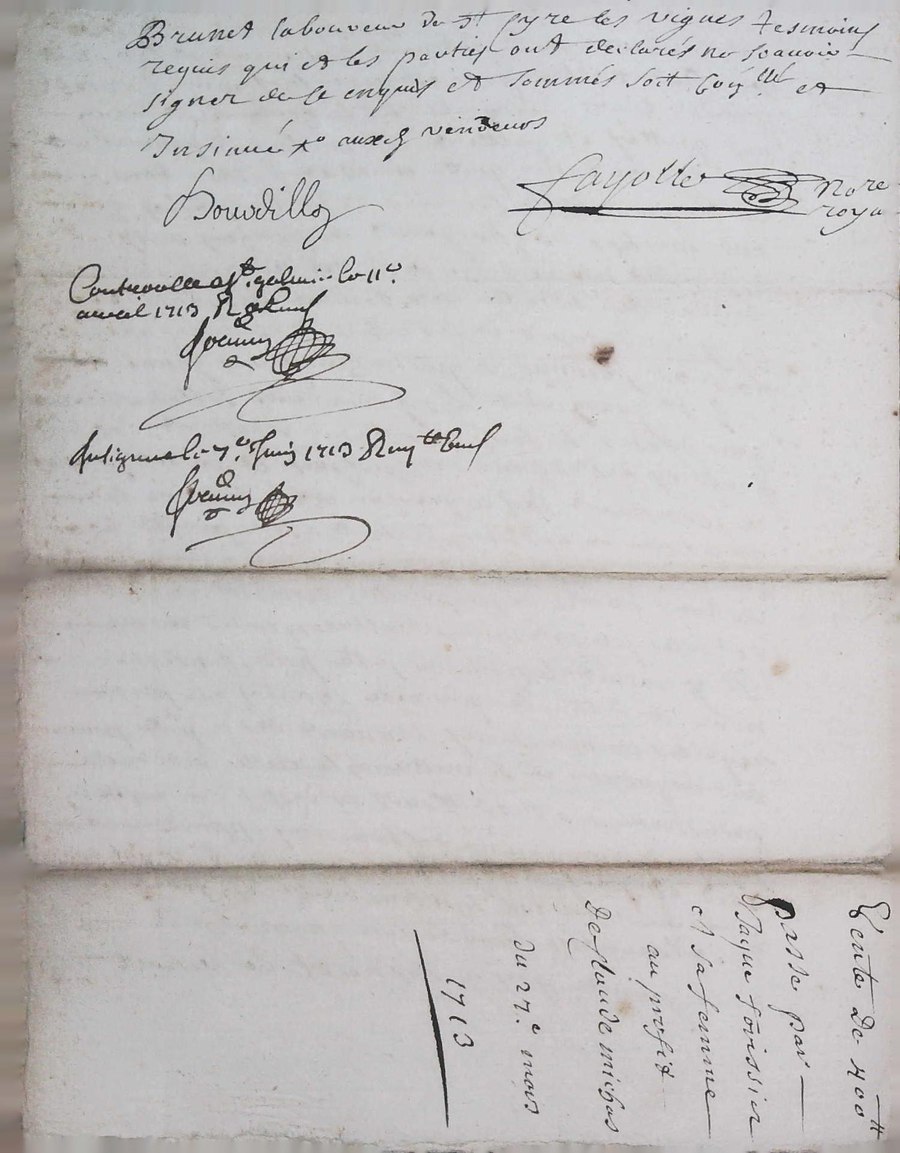 Brunet laboureur de St Cyre les vignes tesmoins
requis qui et les parties ont declarés no scavoir
signer de ce enquis et sommés soit et
Insinué aux vendeurs
Bourdillon
fayolle Nore
roya
Controolle a St galmier le 11e
avril 1713 R
le 7e Juin 1713 R
Vente de 400 tt
passe par
Jaque forissier
et sa femme
au profit
De claude michas
du 27e mars
1713